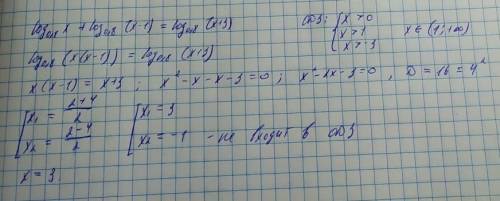 log₀,₂ x + log₀,₂ (x-1) = log₀,₂ (x+3)
ОДЗ: { x > 0 x > 1 x > -3 x ∈ (1; +∞)
log₀,₂ (x(x-1)) = log₀,₂ (x+3)
x(x-1) = x+3 ; x² - x - x - 3 = 0 ; x² - 2x - 3 = 0 , D = 16 = 4²
[ x₁ = (2+4)/2 [ x₁ = 3
x₂ = (2-4)/2 x₂ = -1 - не входит в ОДЗ
x = 3.